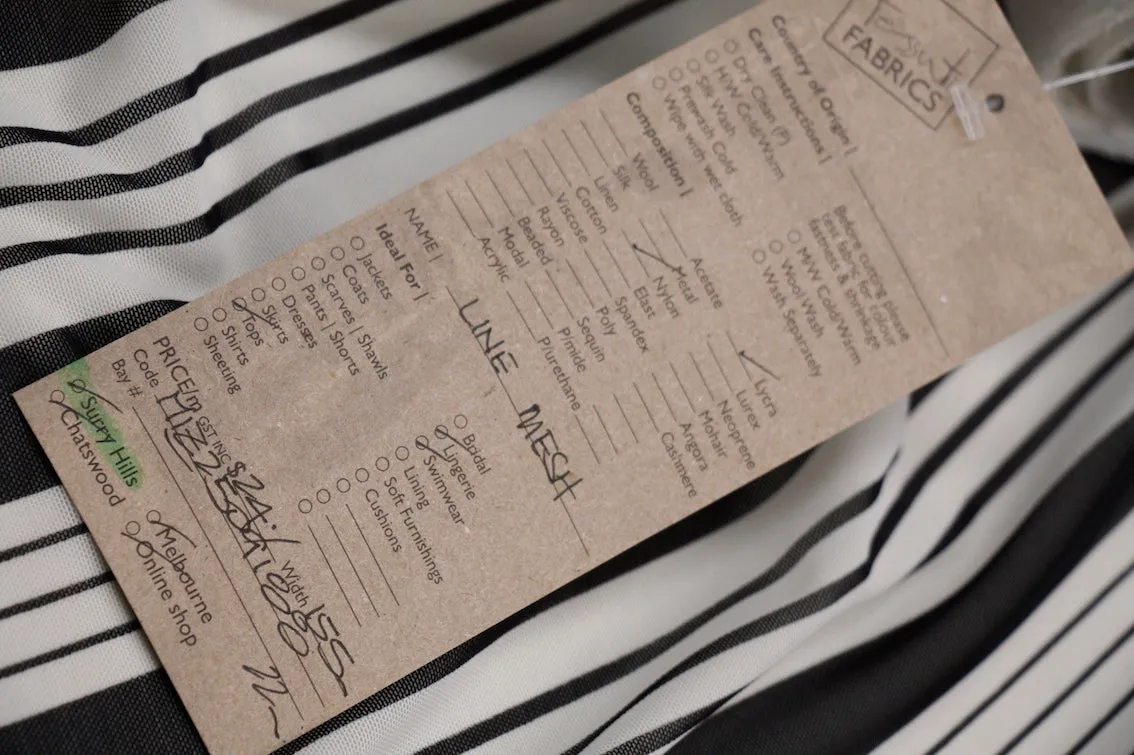 Tessuti
FABRICS
Country of Origin |
Care Instructions |
Dry Clean (P)
H/W Cold/Warm
Silk Wash
Prewash Cold
Wipe with wet cloth
Before cutting please
test fabric for colour
fastness & shrinkage
M/W Cold/Warm
Wool Wash
Wash Separately
Composition |
Wool
Silk
Linen
Cotton
Viscose
Rayon
Beaded
Modal
Acrylic
Acetate
Metal
Nylon
Elast
Spandex
Poly
Sequin
P/mide
P/urethane
Lycra
Lurex
Neoprene
Mohair
Angora
Cashmere
NAME | LINE MESH
Ideal For |
Jackets
Coats
Scarves | Shawls
Pants | Shorts
Dresses
Skirts
Tops
Shirts
Sheeting
Bridal
Lingerie
Swimwear
Lining
Soft Furnishings
Cushions
PRICE/m GST INC $24.- Width 155
Code
Bay #
Surry Hills
Chatswood
Melbourne
Online shop